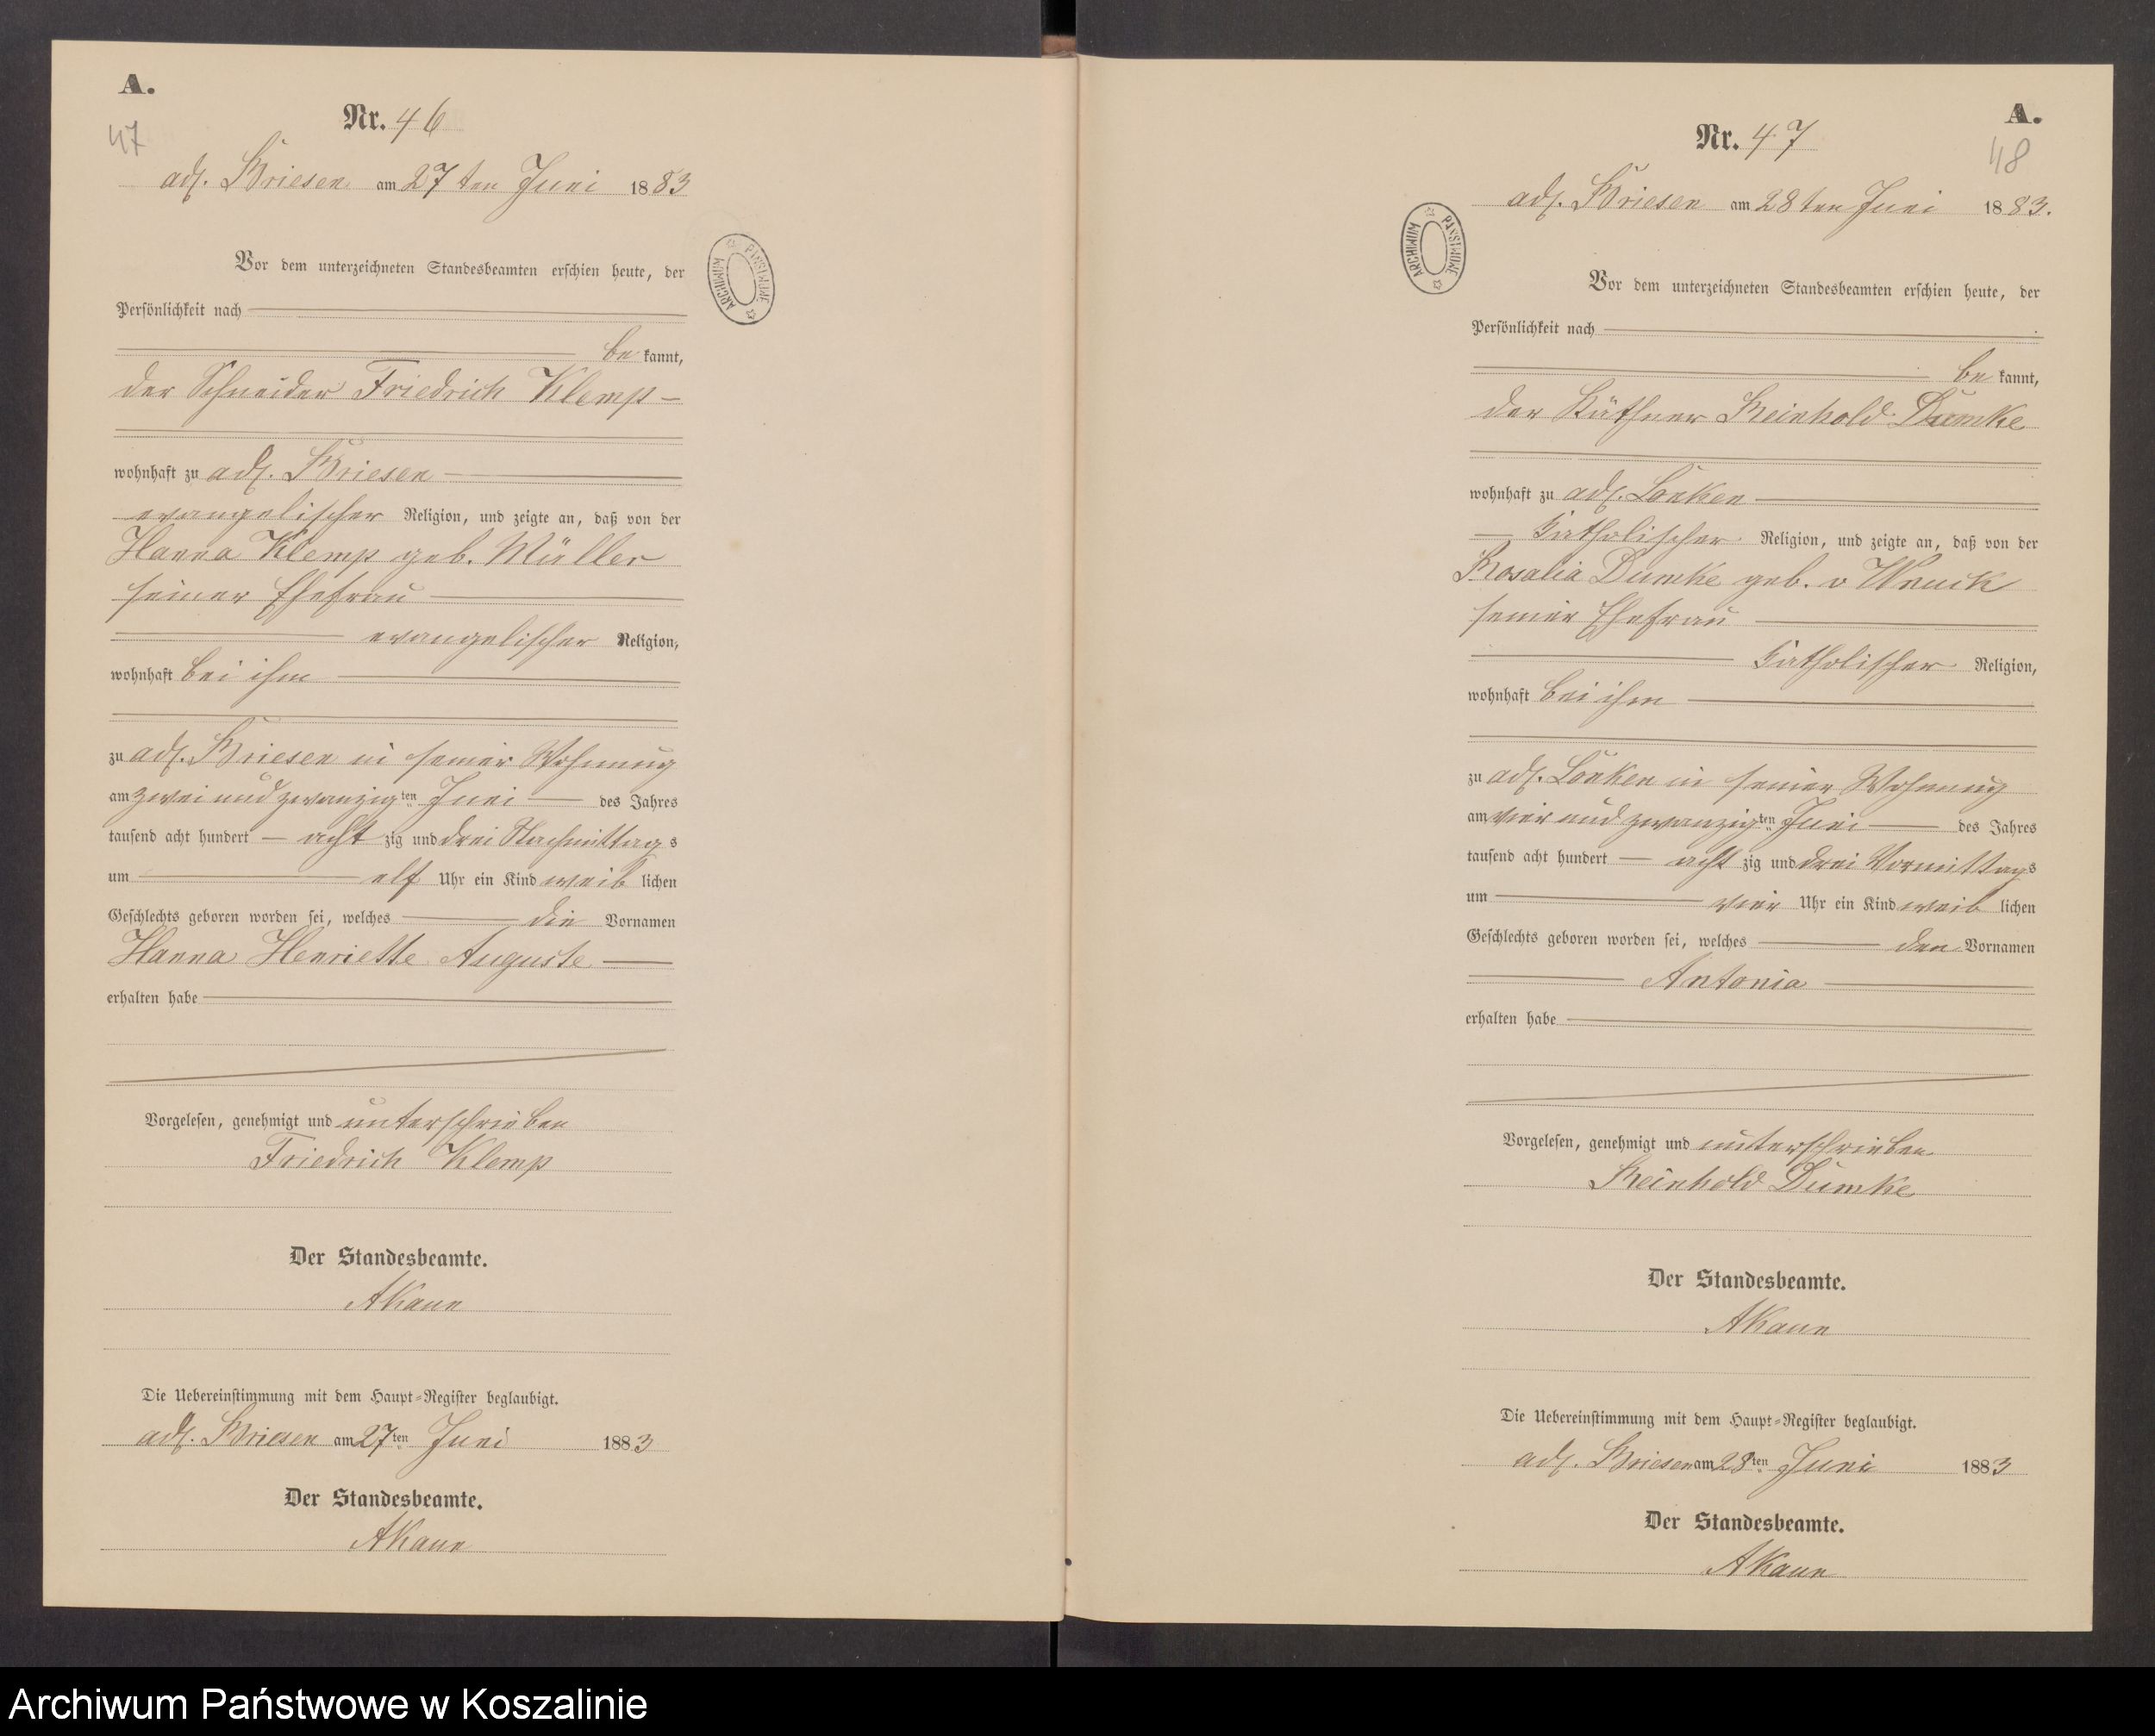 A.
47
Nr. 46
adl. Briesen am 27ten Juni 1883
Vor dem unterzeichneten Standesbeamten erschien heute, der
Persönlichkeit nach
be kannt,
der Schneider Friedrich Klemp
wohnhaft zu adl. Briesen
evangelischer Religion, und zeigte an, daß von der
Hanna Klemp geb. Müller
seiner Ehefrau
evangelischer Religion,
wohnhaft bei ihm
zu adl. Briesen in seiner Wohnung
am zwei und zwanzigten Juni des Jahres
tausend acht hundert acht zig und drei Nachmittags
um elf Uhr ein Kind weib lichen
Geschlechts geboren worden sei, welches die Vornamen
Hanna Henriette Auguste
erhalten habe
Vorgelesen, genehmigt und unterschrieben
Friedrich Klemp
Der Standesbeamte.
AKaun
Die Uebereinstimmung mit dem Haupt-Register beglaubigt.
adl. Briesen am 27ten Juni 1883
Der Standesbeamte.
AKaun
ARCHIWUM PAŃSTWOWE
A.
48
Nr. 47
adl. Briesen am 28ten Juni 1883.
ARCHIWUM PAŃSTWOWE
Vor dem unterzeichneten Standesbeamten erschien heute, der
Persönlichkeit nach
be kannt,
der Käthner Reinhold Dumke
wohnhaft zu adl. Lonken
katholischer Religion, und zeigte an, daß von der
Rosalia Dumke geb. v
seiner Ehefrau
katholischer Religion,
wohnhaft bei ihm
zu adl. Lonken in seiner Wohnung
am vier und zwanzigten Juni des Jahres
tausend acht hundert acht zig und drei Vormittags
um vier Uhr ein Kind weib lichen
Geschlechts geboren worden sei, welches den Vornamen
Antonia
erhalten habe
Vorgelesen, genehmigt und unterschrieben
Reinhold Dumke
Der Standesbeamte.
AKaun
Die Uebereinstimmung mit dem Haupt-Register beglaubigt.
adl. Briesen am 28ten Juni 1883
Der Standesbeamte.
AKaun
Archiwum Państwowe w Koszalinie